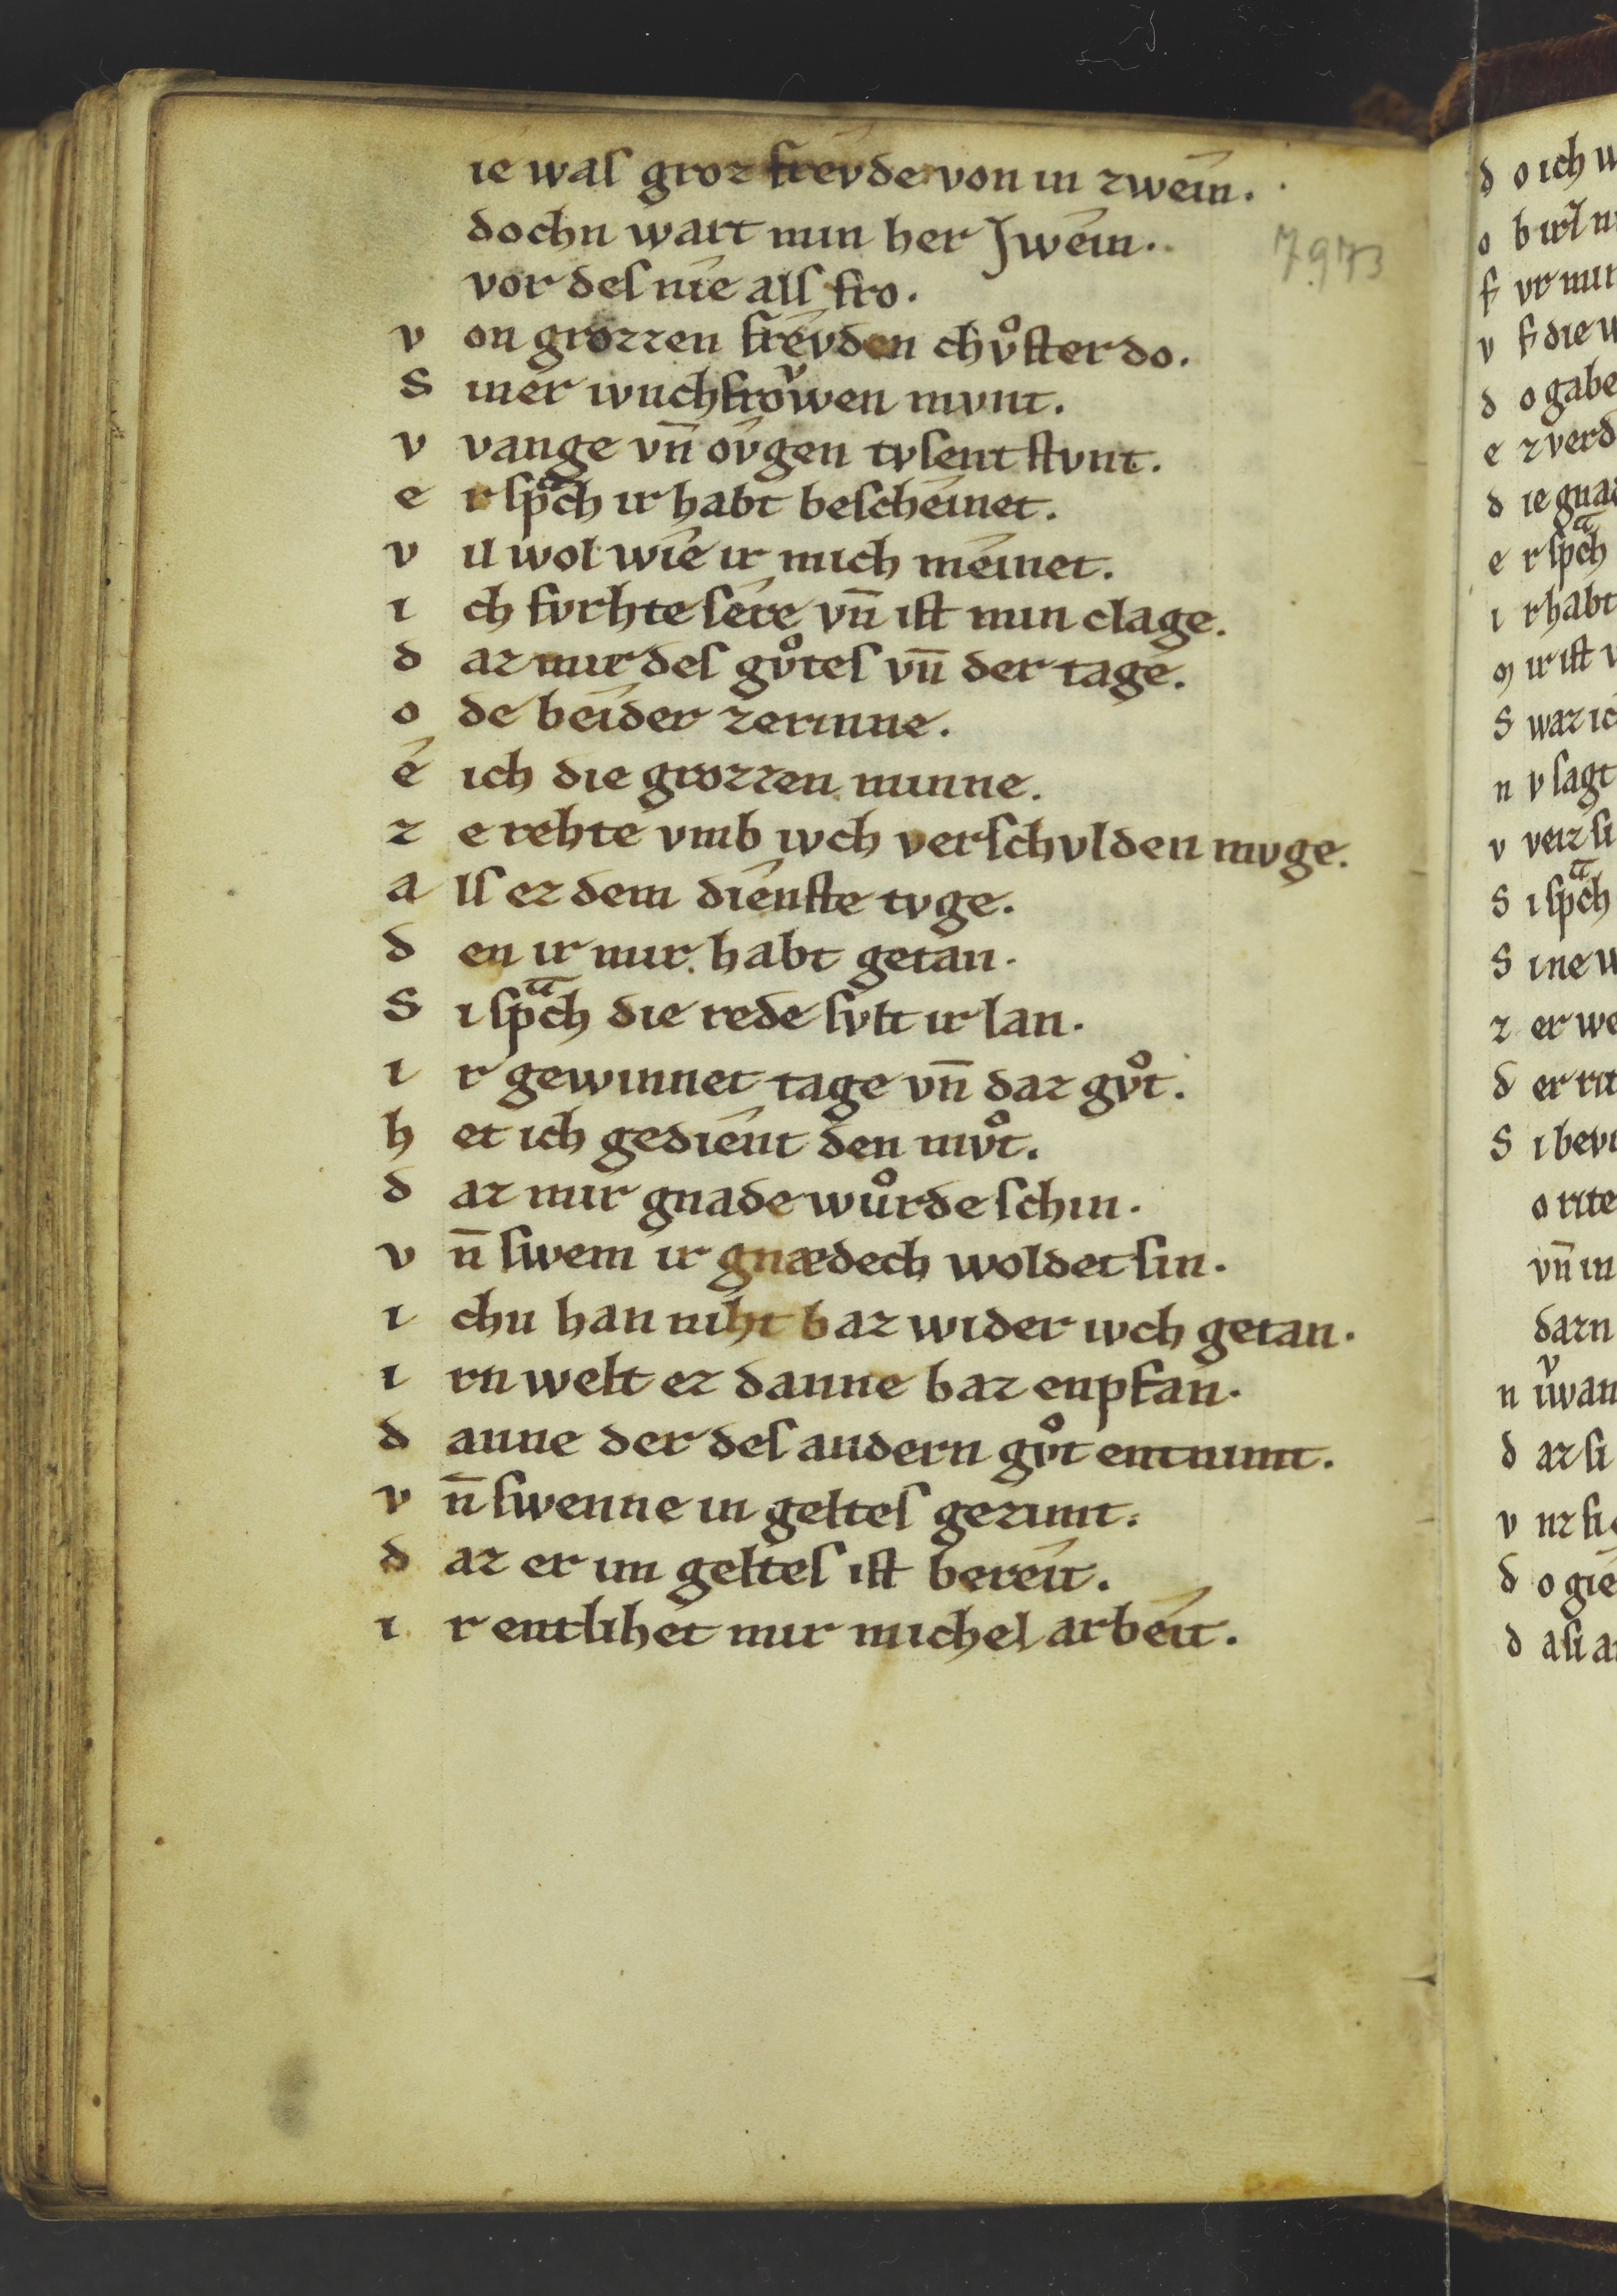 ie waſ groz frevde von in zwein.
dochn wart min her Jwein. 7973
vor deſ nie alſ fro.
v on grozzen frevden chvͦſter do.
S iner ivnchfroͮwen mvnt.
v vange vn̄ oͮvgen tvſent ſtvnt.
e r ſpͣch ir habt beſcheinet.
v il wol wie ir mich meinet.
i ch fvrhte ſere vn̄ iſt min clage.
d az mir deſ gvͦteſ vn̄ der tage.
o de beider zerinne.
é ich die grozzen minne.
z e rehte vmb ivch verſchvlden mvge.
a lſ ez dem dienſte tvge.
d en ir mir habt getan.
S i ſpͣch die rede ſvlt ir lan.
i r gewinnet tage vn̄ daz gvͦt.
h et ich gedient den mvͦt.
d az mir gnade wuͦrde ſchin.
v n̄ ſwem ir gnædech woldet ſin.
i chn han niht baz wider ivch getan.
i rn welt ez danne baz enpfan.
d anne der deſ andern gvͦt entnimt.
v n̄ ſwenne in gelteſ gezimt.
d az er im gelteſ iſt bereit.
i r entlihet mir michel arbeit.
d o ich
o b
f vr min
v f die
d o gabe
e z verd
d ie gnad
e r ſpͣch
i r habt
m ir iſt
S waz ic
n v ſagt
v veiz ſi
S i ſpͣch
S ine
z er we
d er rit
S i bevi
o rite
vn̄ in
dazn
n
d az ſi
v nz ſi
d o gie
d a ſi